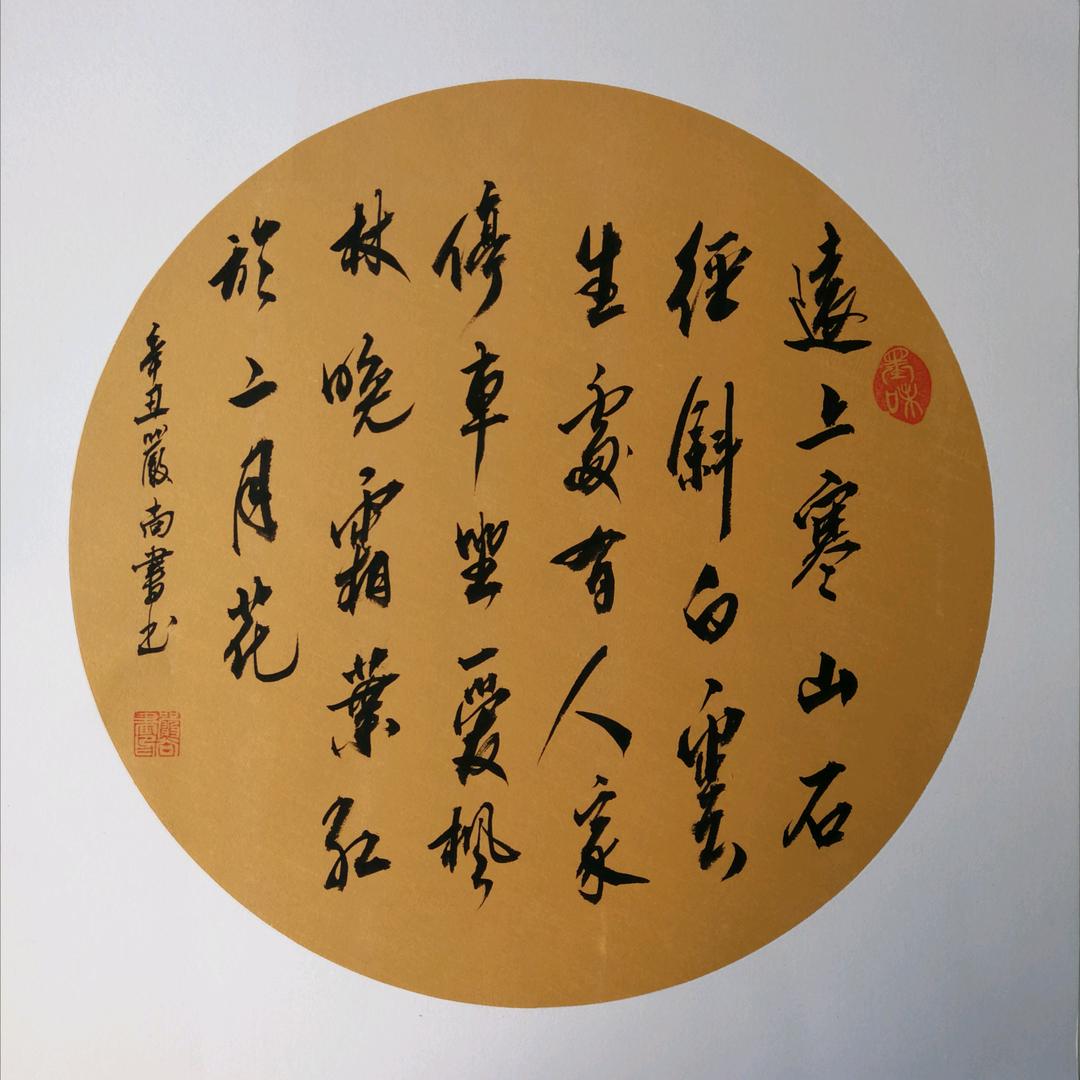 遠上寒山石
徑斜白雲
生處有人家
停車坐愛楓
林晚霜葉紅
於二月花
辛丑嚴尚書書
墨味